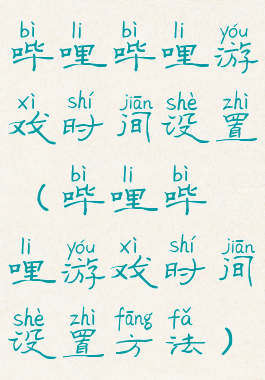 bì lì bì lì yóu
哔哩哔哩游
xì shí jiān shè zhì
戏时间设置
bì lì bì
(哔哩哔
lì yóu xì shí jiān
哩游戏时间
shè zhì fāng fǎ
设置方法)